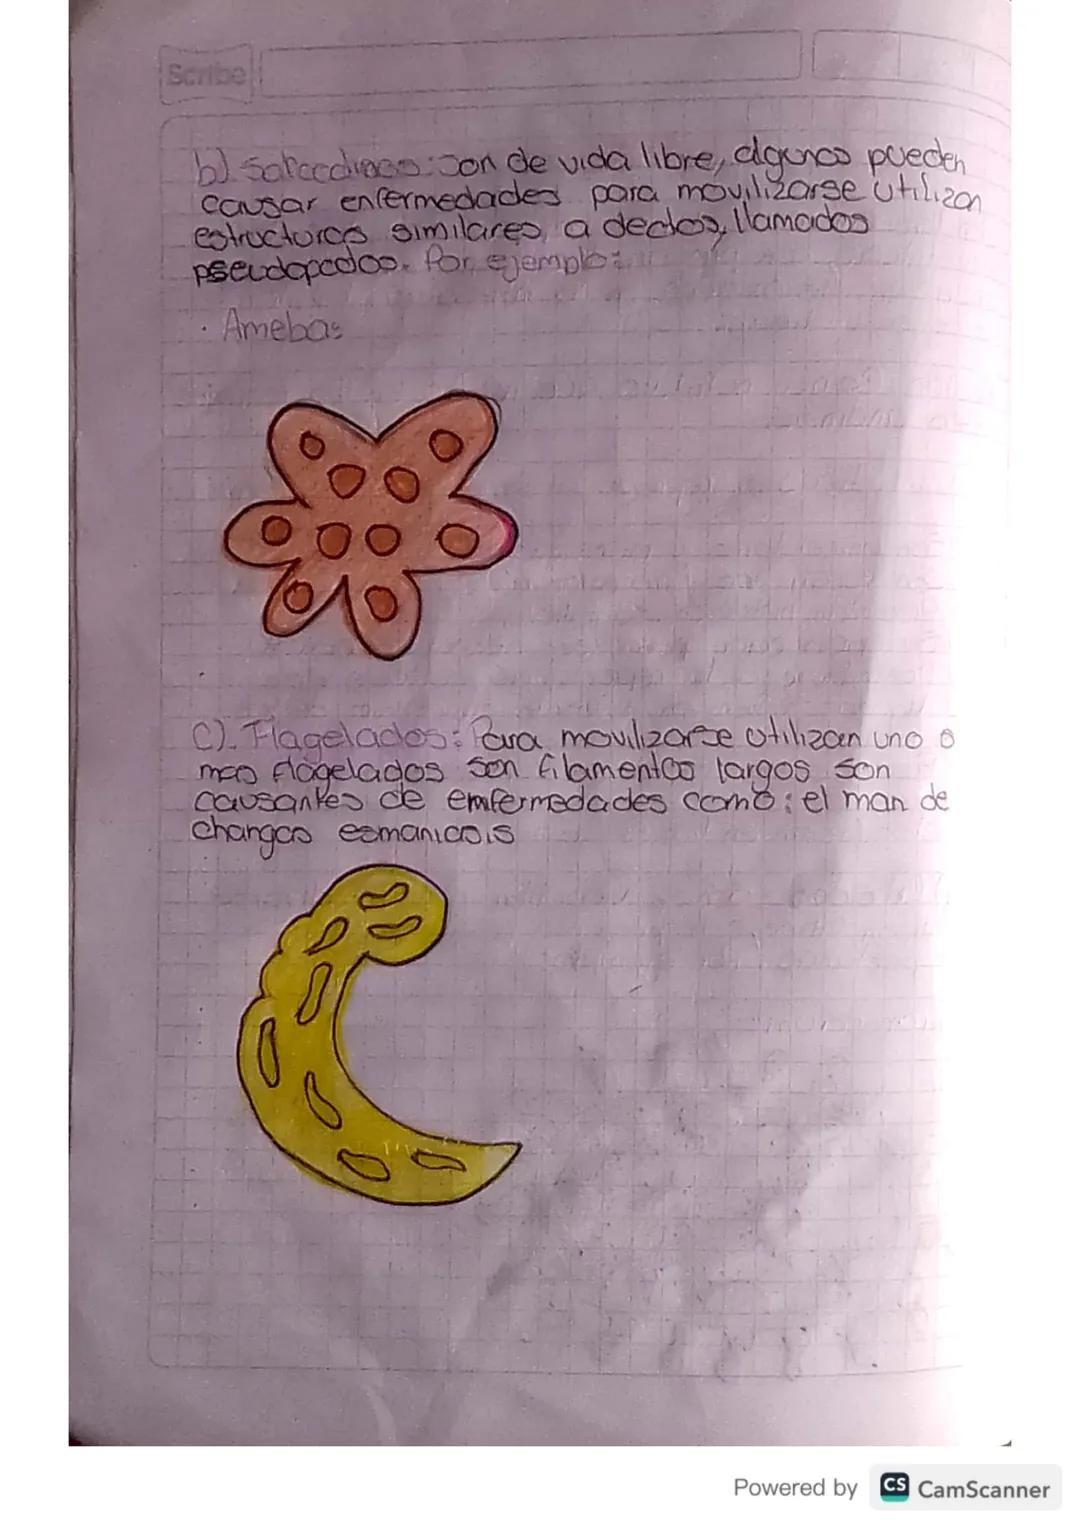 Scribe
b). Sarcodinos: Son de vida libre, algunos pueden
causar enfermedades para movilizarse utilizan
estructuras similares, a dedos, llamados
pseudopodos. Por ejemplo:
· Amebas
C). Flagelados: Para movilizarse utilizan uno o
mas flagelados son filamentos largos son
causantes de emfermedades como: el man de
changas esmanicois
Powered by CS CamScanner